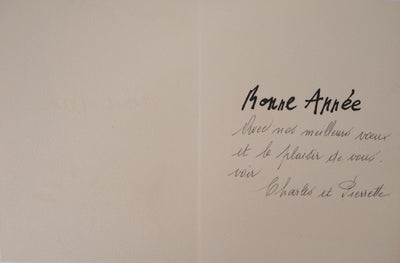 Bonne Année
Avec nos meilleurs vœux
et le plaisir de vous.
voir
Charles et Pierrette